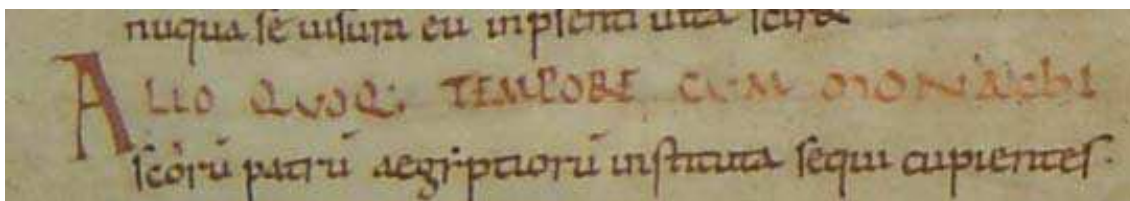 nuqua se uisura eu inpsenti uita sciret
ALIO QUOQ; TEMPORE CUM MONAChI
scorū patrū aegyptiorū instituta sequi cupientes.